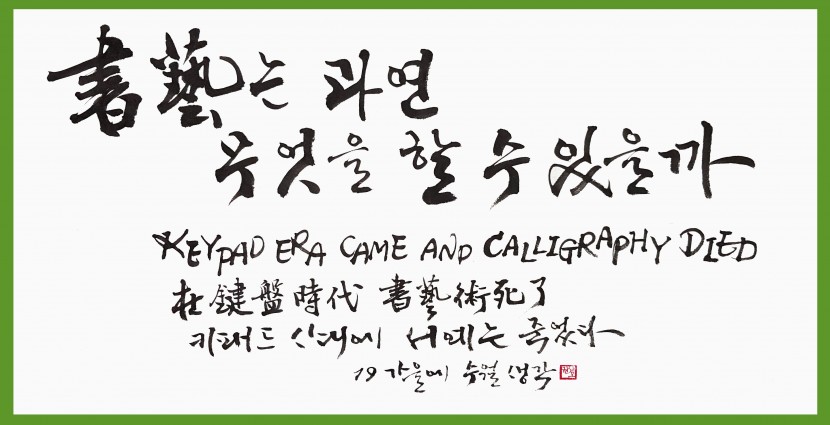 書藝는 과연
무엇을 할 수 있을까
KEYPAD ERA CAME AND CALLIGRAPHY DIED
在鍵盤時代 書藝術死了
키패드 시대에 서예는 죽었다
19 가을에 수월 생각